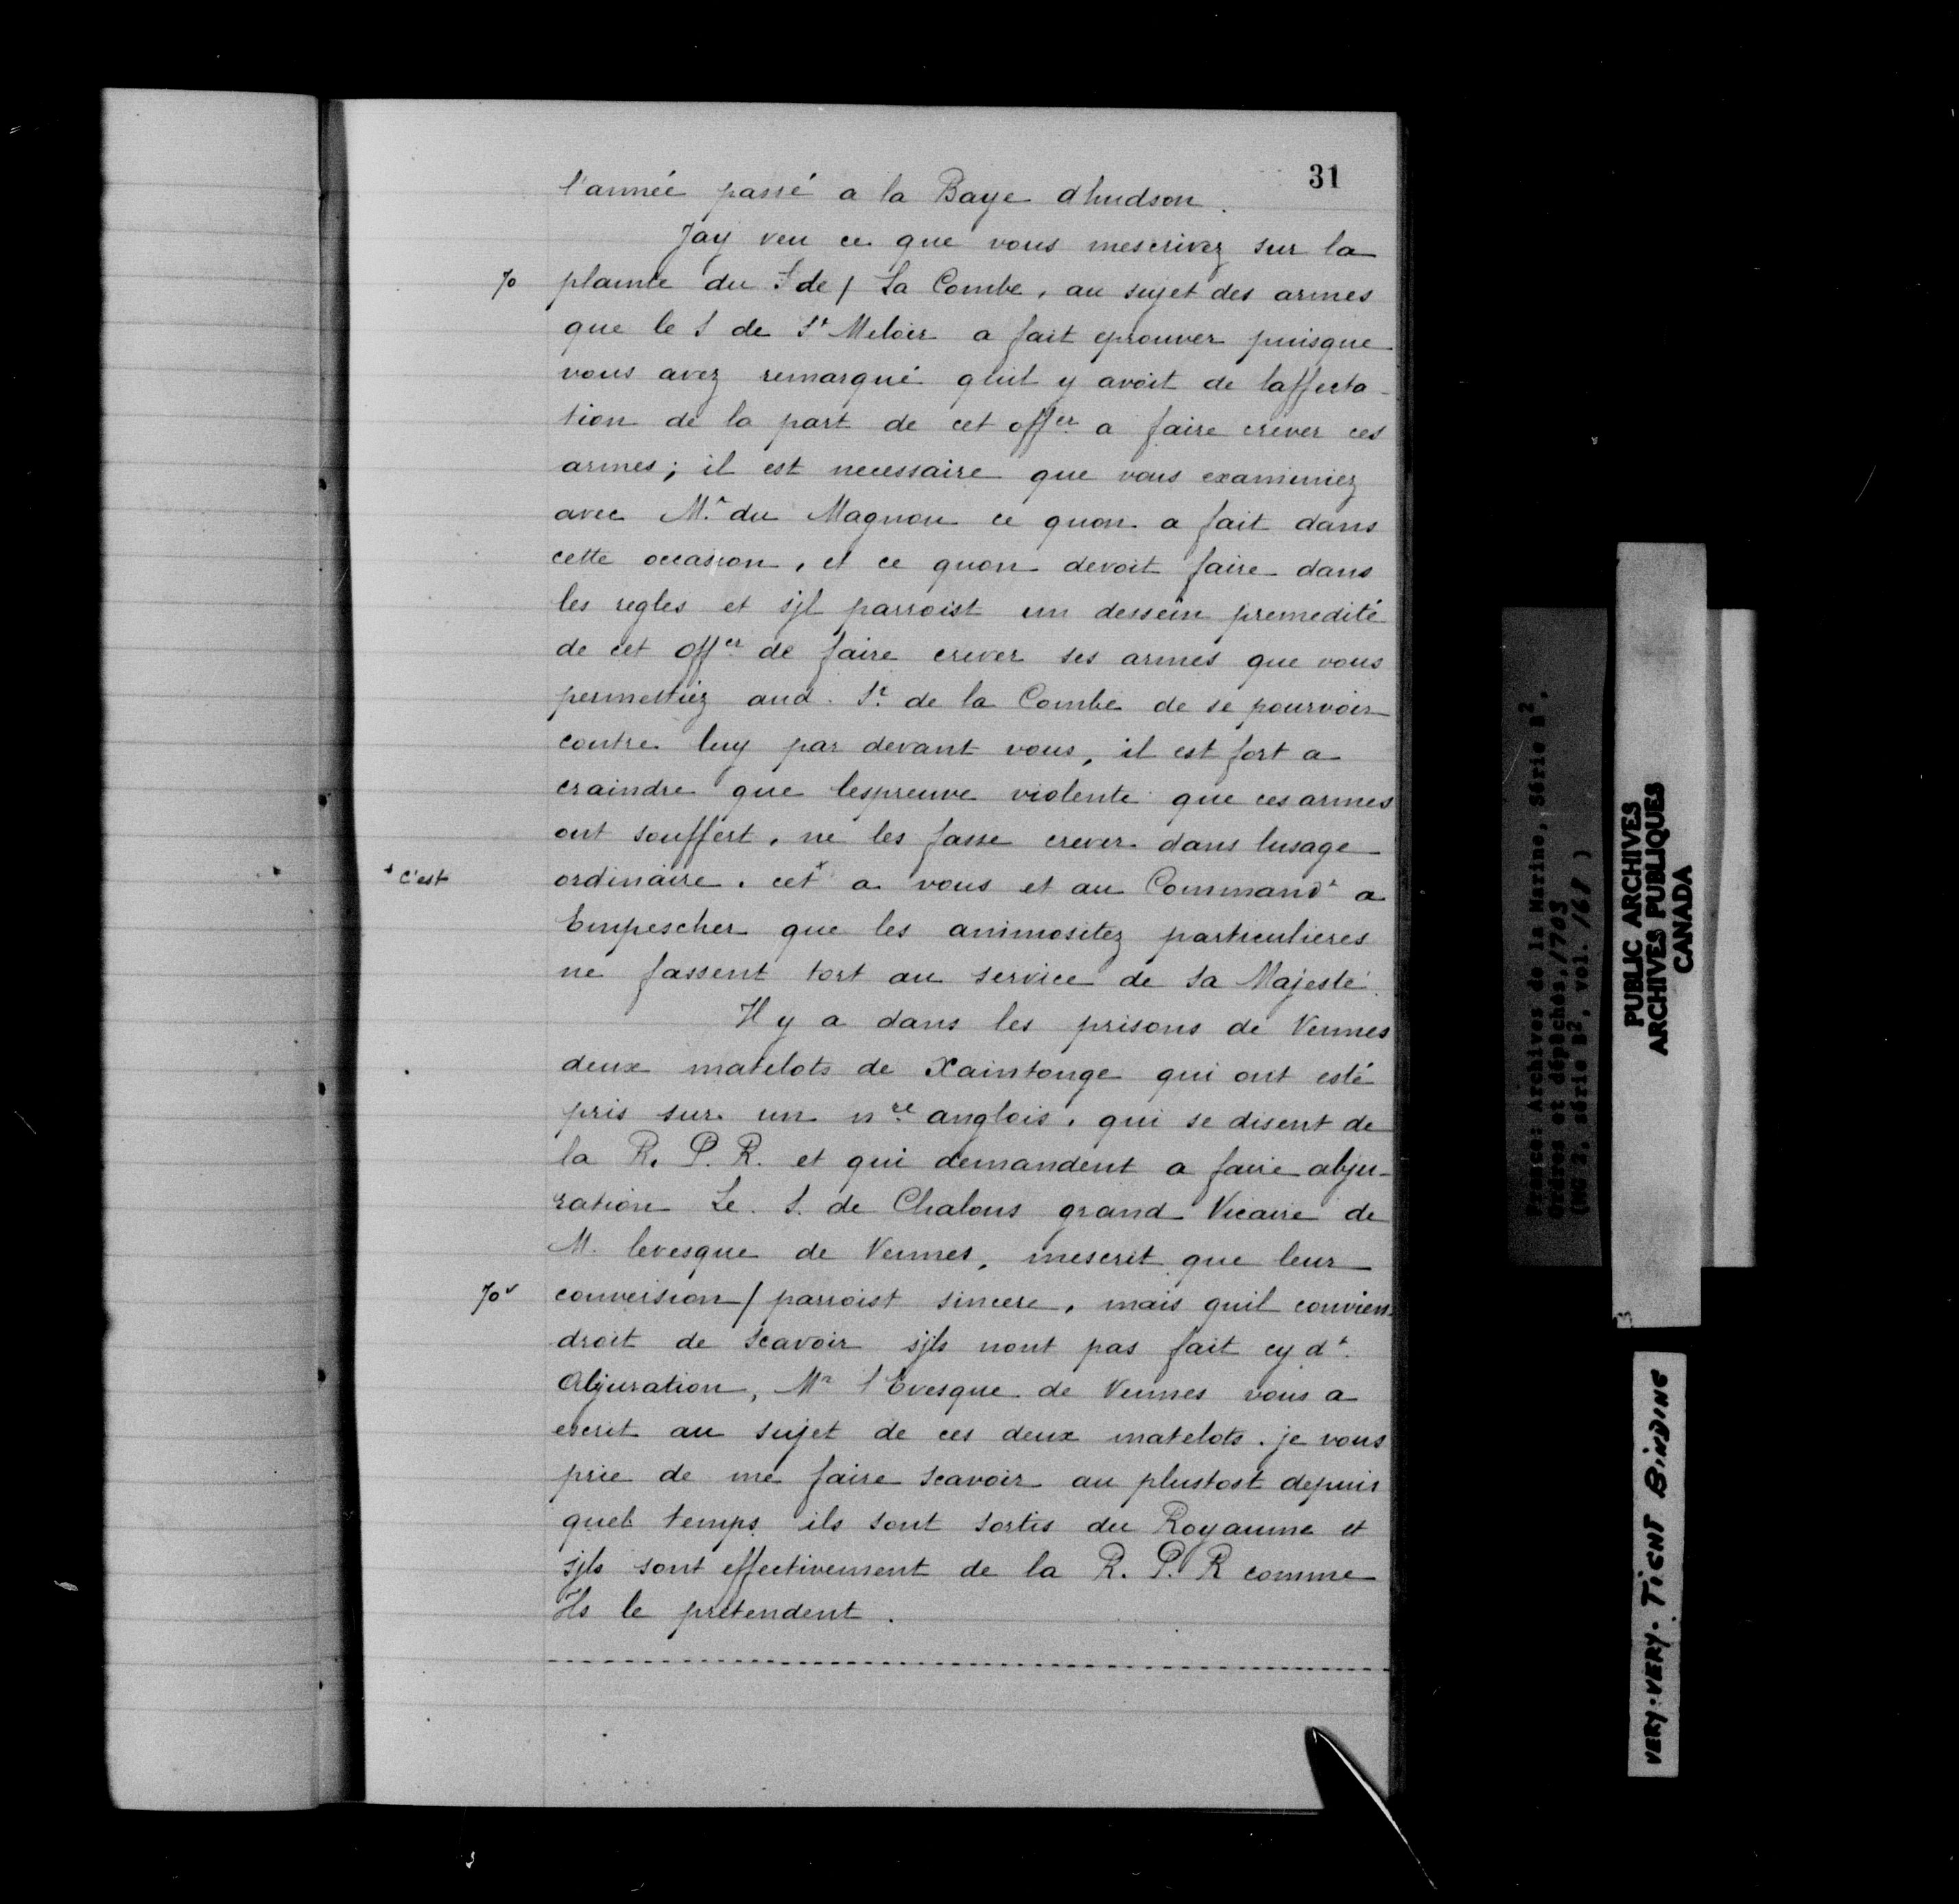 31
l'année passé a la Baye dhudson.
Jay veu ce que vous mescrivez sur la
70 plainte du S de / La Combe, au sujet des armes
que le S de St Meloir a fait eprouver puisque
vous avez remarqué qluil y avoit de laffecta-
tion de la part de cet offer a faire crever ces
armes; il est necessaire que vous examiniez
avec Mr du Magnou ce quon a fait dans
cette occasion, et ce quon devoit faire dans
les regles et sjl parroist un dessein premedité
de cet offer de faire crever ses armes que vous
permettiez aud. Sr de la Combe de se pourvoir
contre luy par devant vous, il est fort a
craindre que lespreuve violente que ces armes
ont souffert, ne les fasse crever dans lusage
+ c'est ordinaire. cet+ a vous et au Commandt a
Empescher que les animositez particulieres
ne fassent tort au service de sa Majesté.
Il y a dans les prisons de Vennes
deux matelots de Xaintonge qui ont esté
pris sur un nre anglois, qui se disent de
la R. P. R. et qui demandent a faire abju-
ration Le. S. de Chalons grand Vicaire de
M. levesque de Vennes, mescrit que leur
70v conversion / parroist sincere, mais quil convien-
droit de scavoir sjls nont pas fait cy dt.
Abjuration, Mr l'Evesque de Vennes vous a
escrit au sujet de ces deux matelots. je vous
prie de me faire scavoir au plustost depuis
quel temps ils sont sortis du Royaume et
sjls sont effectivement de la R. P. R comme
Ils le pretendent.
France: Archives de la Marine, Série B2,
Ordres et dépêches, 1703
(MG 2, série B2, vol. 168)
PUBLIC ARCHIVES
ARCHIVES PUBLIQUES
CANADA
VERY-VERY. TIGHT BINDING